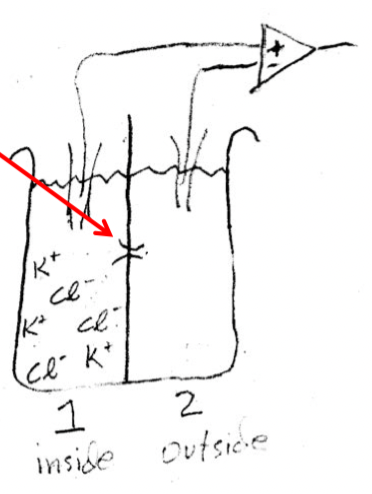 +
-
K⁺
Cl⁻
K⁺ Cl⁻
Cl⁻ K⁺
1 2
inside outside